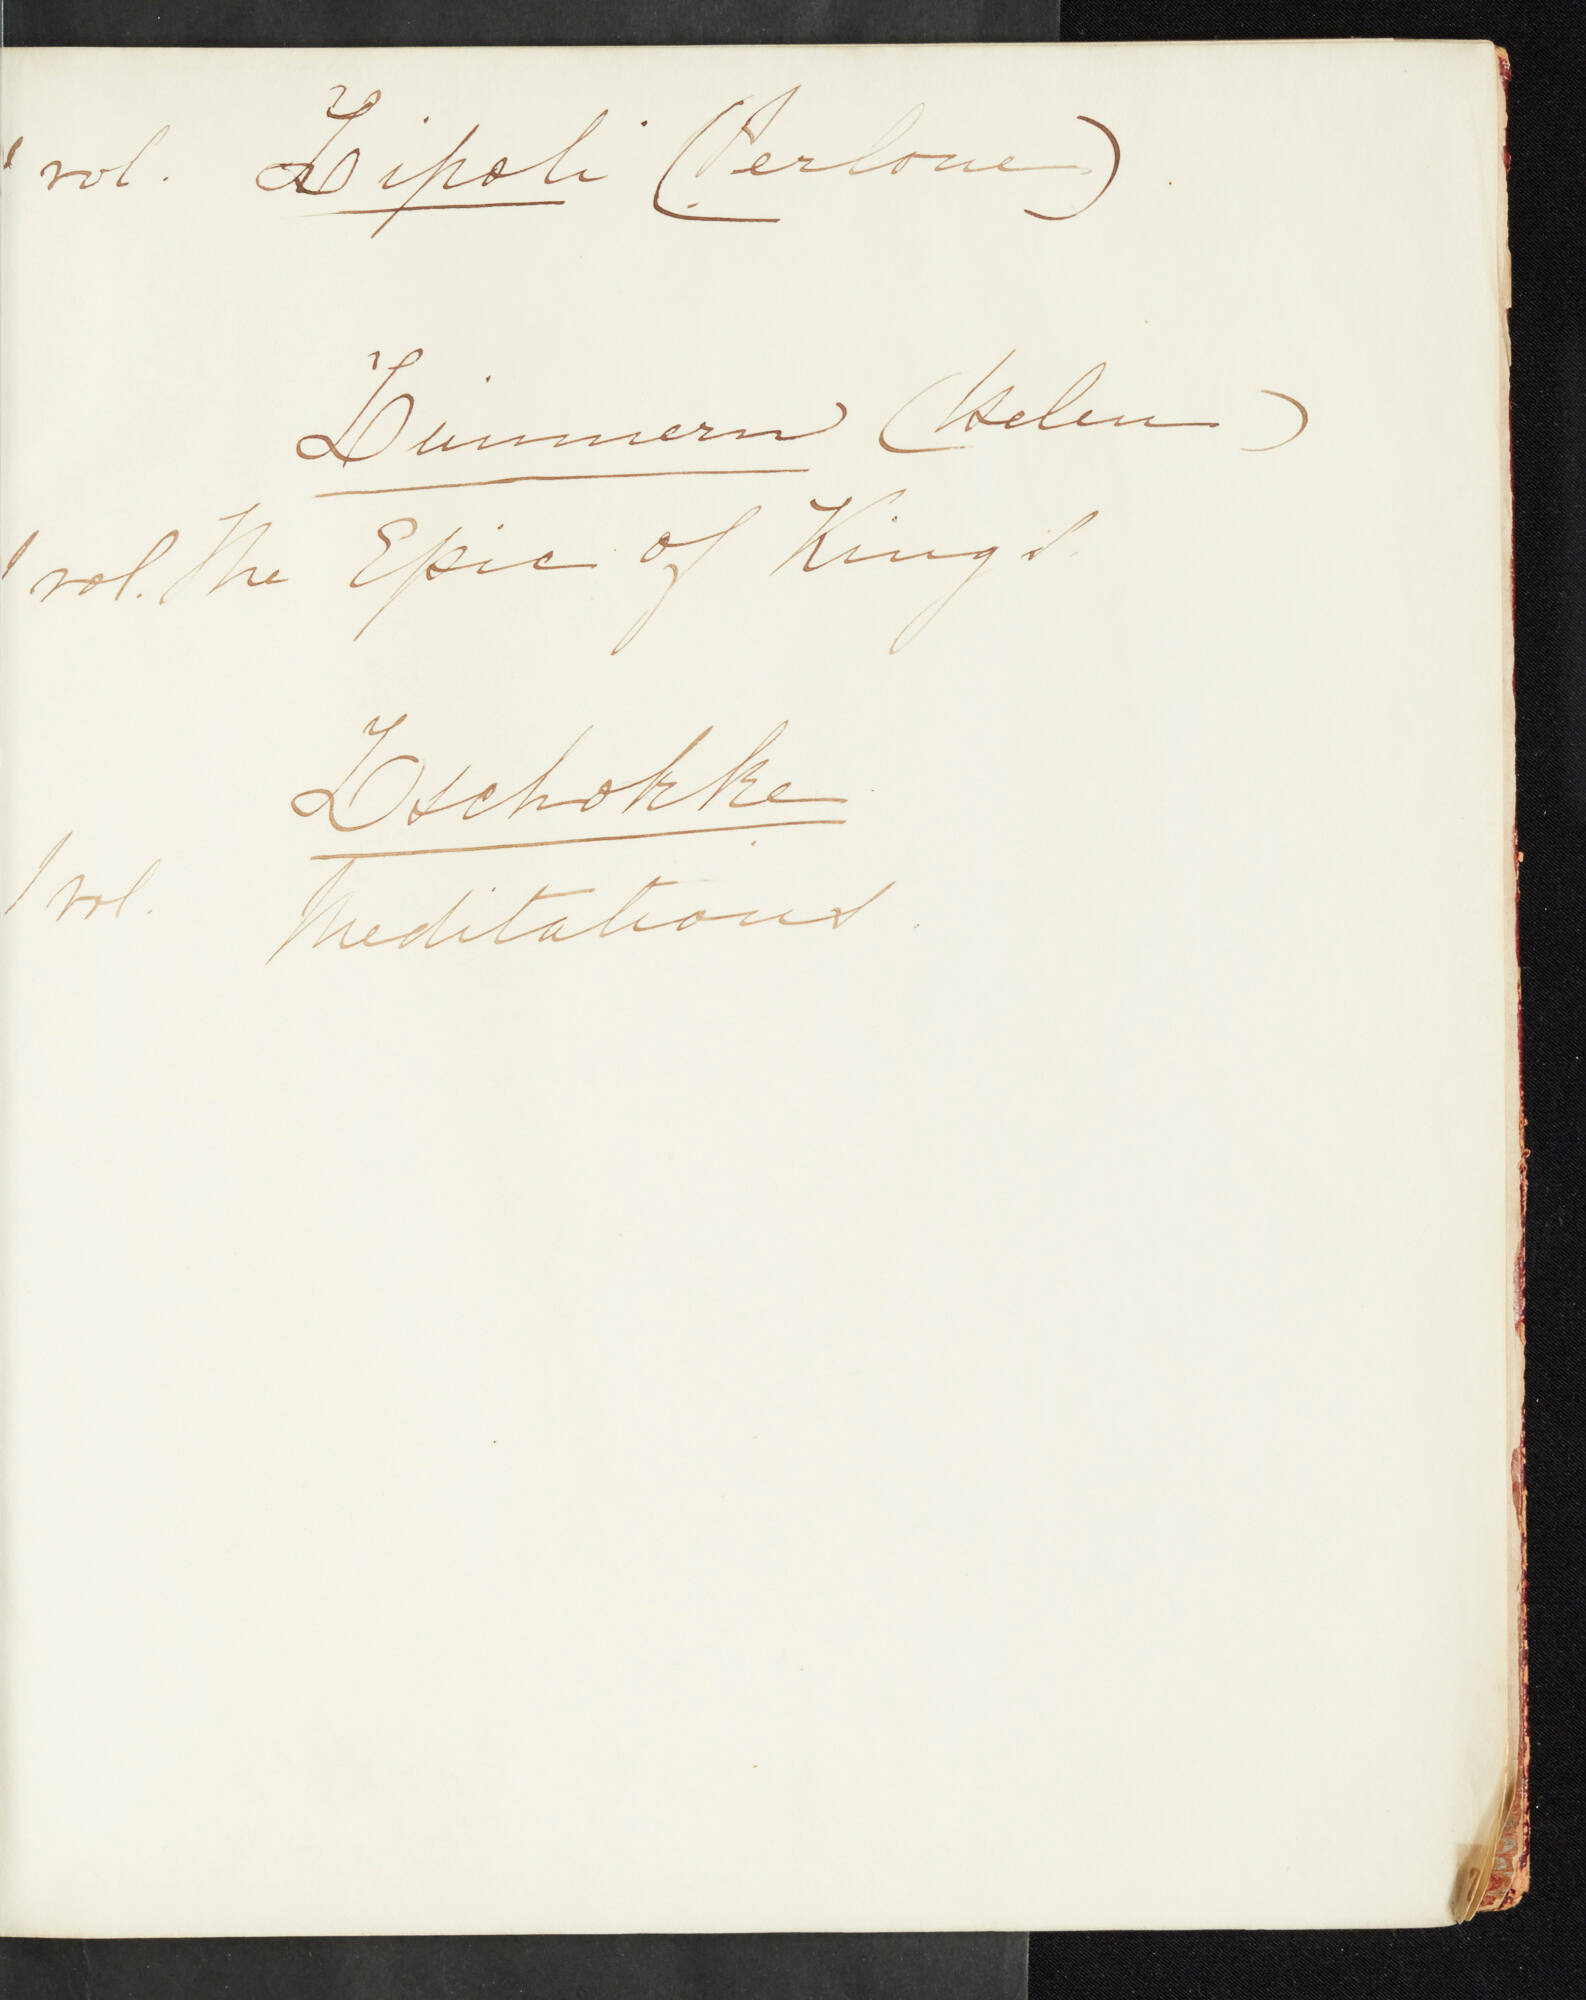 1 vol. Zipoli (Perlone).
Zimmern (Helen)
1 vol. The Epic of Kings.
Zschokke.
1 vol. Meditations.